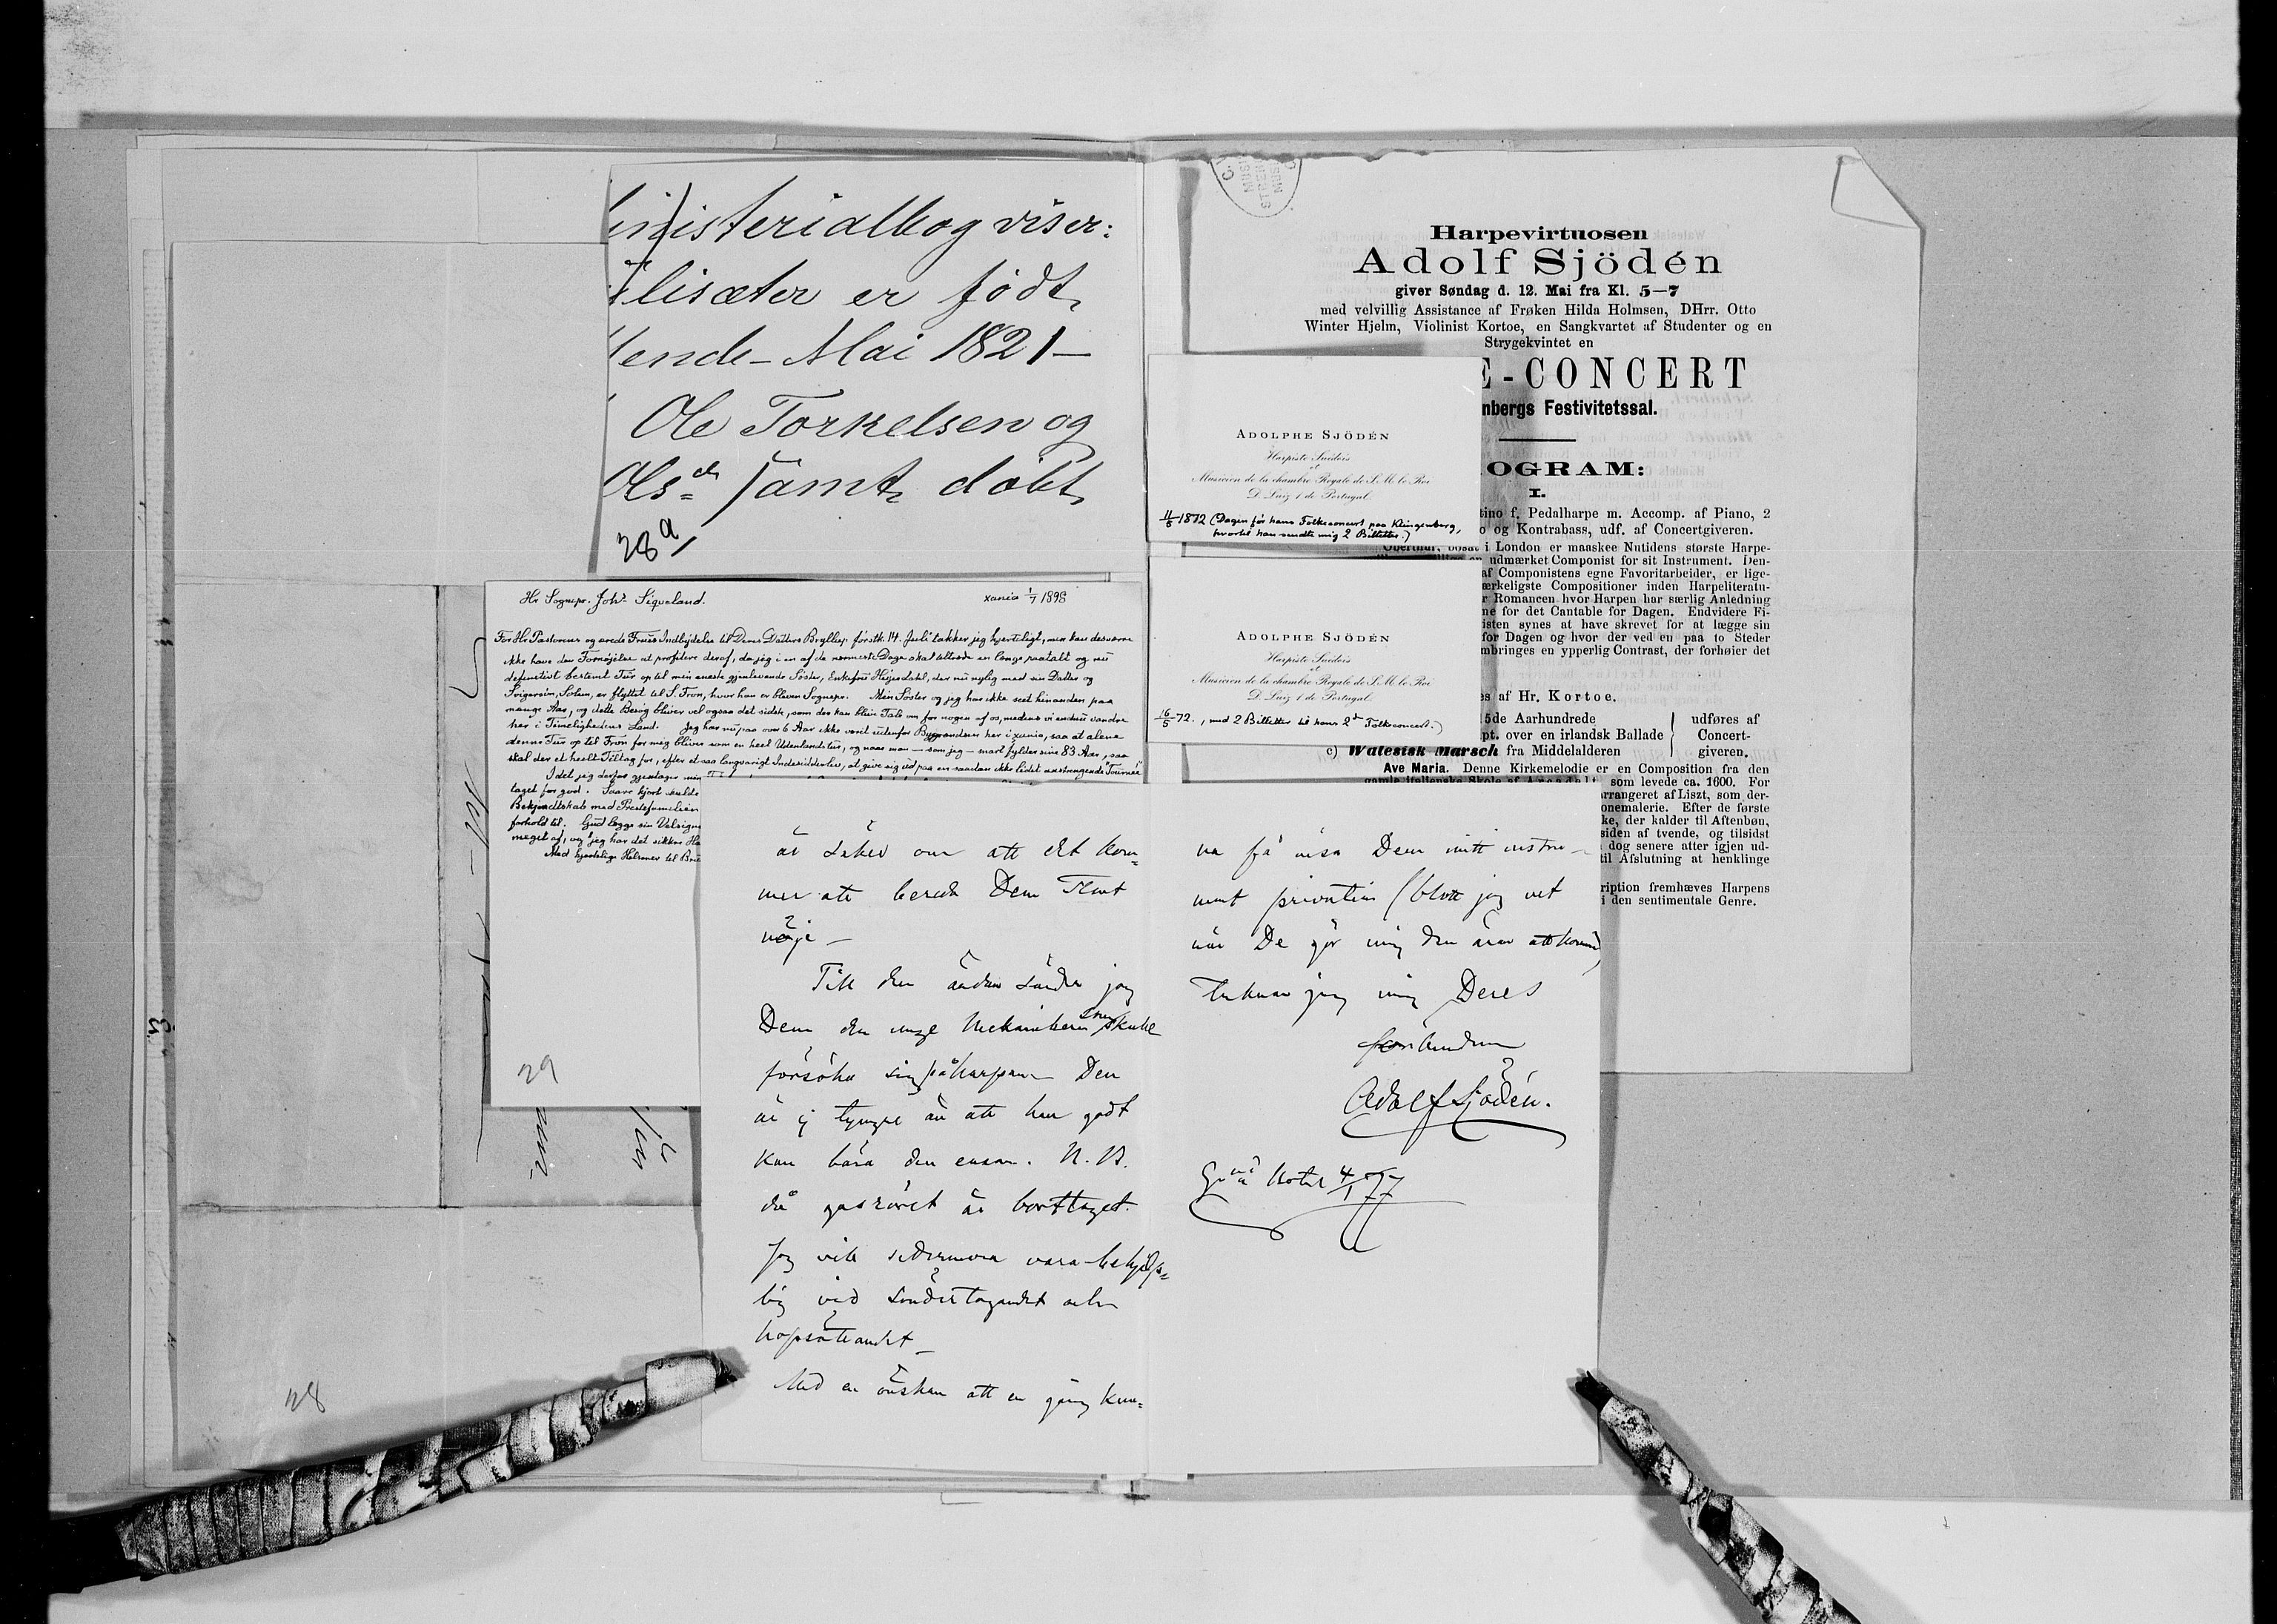 ministerialbog viser:
lisæter er født
ende Mai 1821 –
Ole Torkelsen og
Olsdr samt døbt
28a
Hr Sognepr. Johs. Siqveland.
Xania 1/7 1898
For Hr Pastorens og ærede Frues Indbydelse til Deres Datters Bryllup førstk. 14. Juli takker jeg hjerteligt, men kan desværre
ikke have den Fornøjelse at profitere deraf, da jeg i en af de nærmeste Dage skal tiltræde en længe paatalt og nu
definitivt bestemt Tur op til min eneste gjenlevende Søster, Enkefru Dahl, der nu nylig med sin Datter og
Svigersøn, er flyttet til S. Fron, hvor han er bleven Sognepr. Min Søster og jeg har ikke seet hinanden paa
mange Aar, og dette Besøg bliver vel ogsaa det sidste, som der kan blive Tale om for nogen af os, medens vi endnu vandre
her i Timelighedens Land. Jeg har nu paa over 6 Aar ikke været udenfor Bygrændsen her i Xania, saa at alene
denne Tur op til Fron for mig bliver som en heel Udenlandstur, og naar man – som jeg – snart fylder sine 83 Aar, saa
skal der et heelt Tiltag for, efter et saa langvarigt Indesidderliv, at give sig ud paa en saadan ikke lidet anstrengende "Tournée"
Idet jeg derfor gjentager min
taget for god.
Bekjendtskab med Præstefamilien
forhold til. Gud lægge sin Velsign
meget af, og jeg har det sikkre
Med hjertelige Hilsener til
29
28
är säker om att det kom=
mer att bereda Dem stort
nöje –
Till den ändan sänder jag
Dem den unge Mekanikern som skulle
försöka sig på harpan – Den
är ej tyngre än att han godt
kan bära den ensam. N.B.
då gasröret är borttaget.
Jag vill sedermera vara behjelp=
lig vid söndertagandet och
hopsättandet –
Med en önskan att en gång kun=
na få visa Dem mitt instru–
ment privatim (blott jag vet
när De gör mig den äran att komma)
tecknar jag mig Deres
förbundne
Adolf Sjödén.
Grand Hotel 4/1 77
Harpevirtuosen
Adolf Sjödén
giver Søndag d. 12. Mai fra Kl. 5—7
med velvillig Assistance af Frøken Hilda Holmsen, DHrr. Otto
Winter Hjelm, Violinist Kortoe, en Sangkvartet af Studenter og en
Strygekvintet en
E-CONCERT
nbergs Festivitetssal.
OGRAM:
I.
tino f. Pedalharpe m. Accomp. af Piano, 2
o og Kontrabass, udf. af Concertgiveren.
Oberthür, bosat i London er maaskee Nutidens største Harpe-
udmærket Componist for sit Instrument. Den-
af Componistens egne Favoritarbeider, er lige-
ærkeligste Compositioner inden Harpeliteratu-
r Romancen hvor Harpen har særlig Anledning
ne for det Cantable for Dagen. Endvidere Fi-
isten synes at have skrevet for at lægge sin
for Dagen og hvor der ved en paa to Steder
mbringes en ypperlig Contrast, der forhøier det
es af Hr. Kortoe.
15de Aarhundrede
pt. over en irlandsk Ballade
c) Walesisk Marsch fra Middelalderen
udføres af
Concert-
giveren.
Ave Maria. Denne Kirkemelodie er en Composition fra den
gamle italienske Skole af Arcadelt, som levede ca. 1600. For
rrangeret af Liszt, som der-
onemalerie. Efter de første
ke, der kalder til Aftenbøn,
siden af tvende, og tilsidst
dog senere atter igjen ud-
til Afslutning at henklinge
ription fremhæves Harpens
i den sentimentale Genre.
ADOLPHE SJÖDÉN
Harpiste Suédois
et
Musicien de la chambre Royale de S. M. le Roi
D. Luiz 1 de Portugal
11/5 1872 (Dagen før hans Folkeconcert paa Klingenberg,
hvortil han sendte mig 2 Billetter.)
ADOLPHE SJÖDÉN
Harpiste Suédois
et
Musicien de la chambre Royale de S. M. le Roi
D. Luiz 1 de Portugal
16/5 72., med 2 Billetter til hans 2den Folkeconcert.)